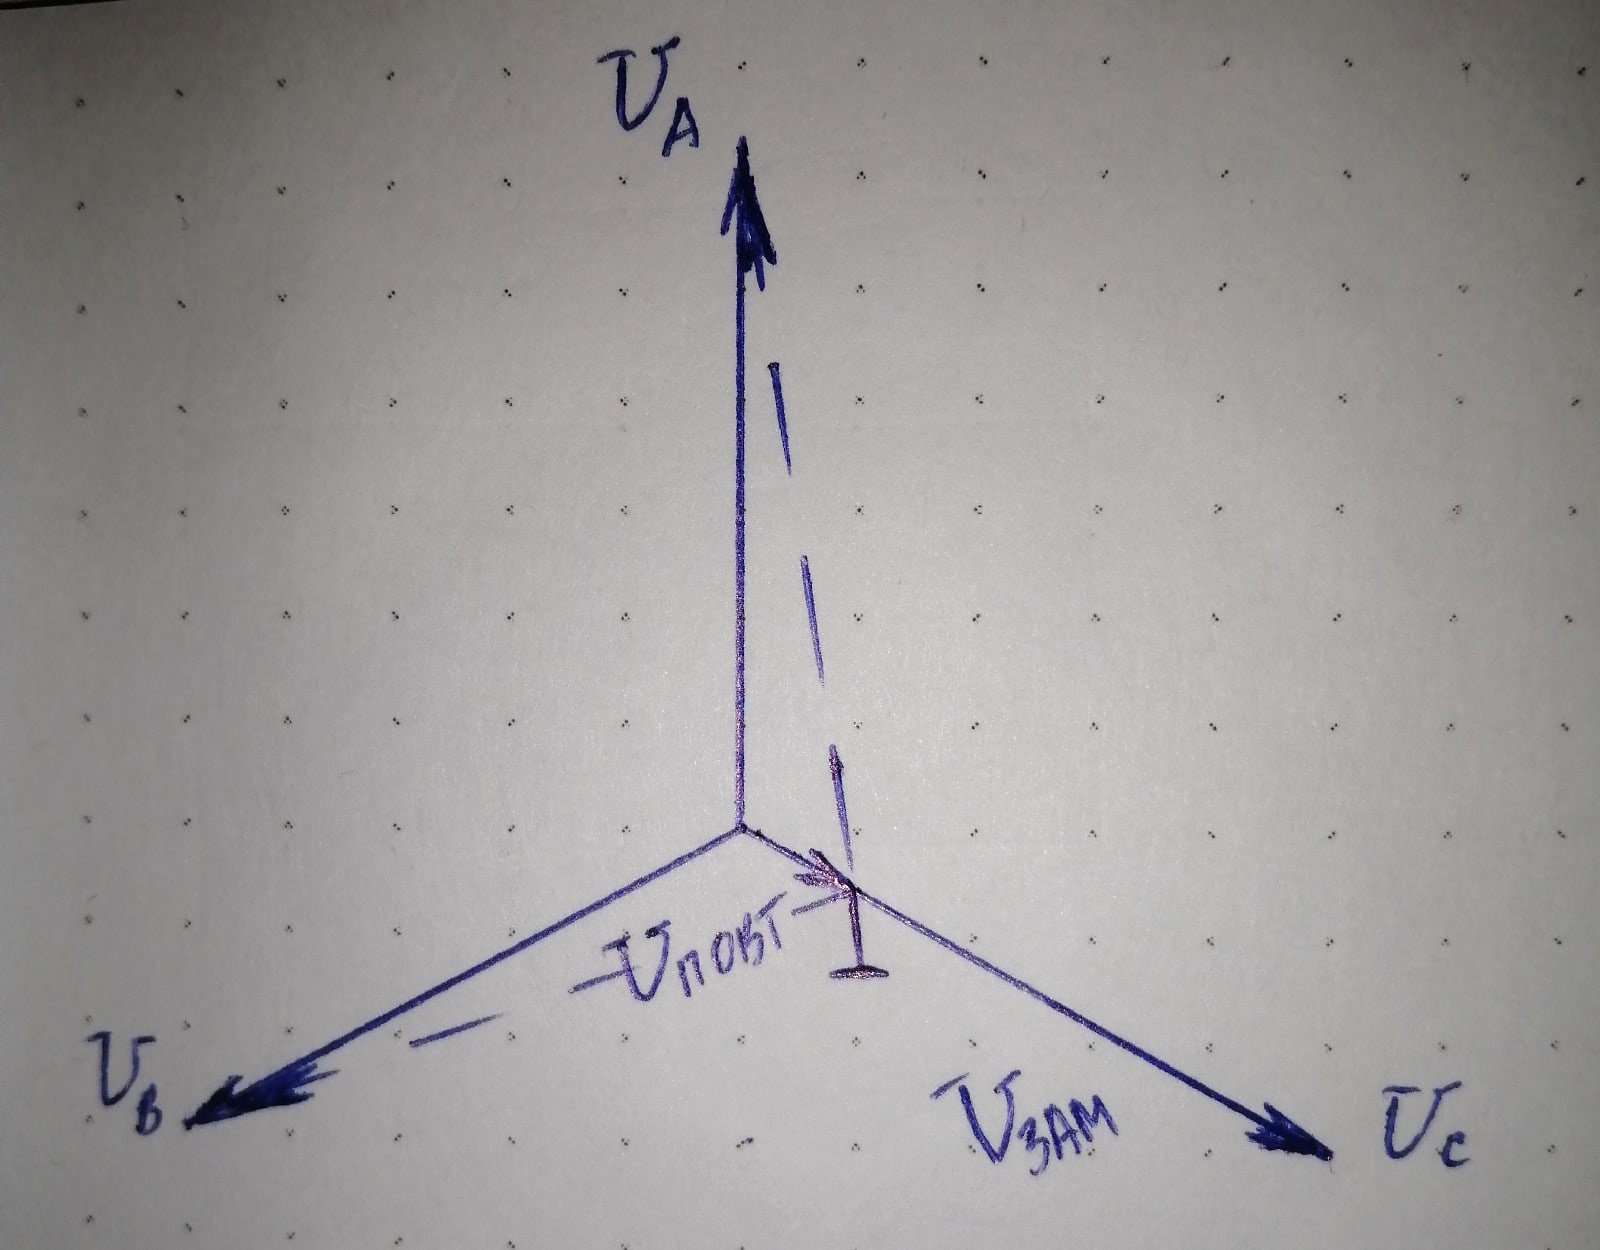 U_A
U_ПОВТ
U_B
U_ЗАМ
U_C